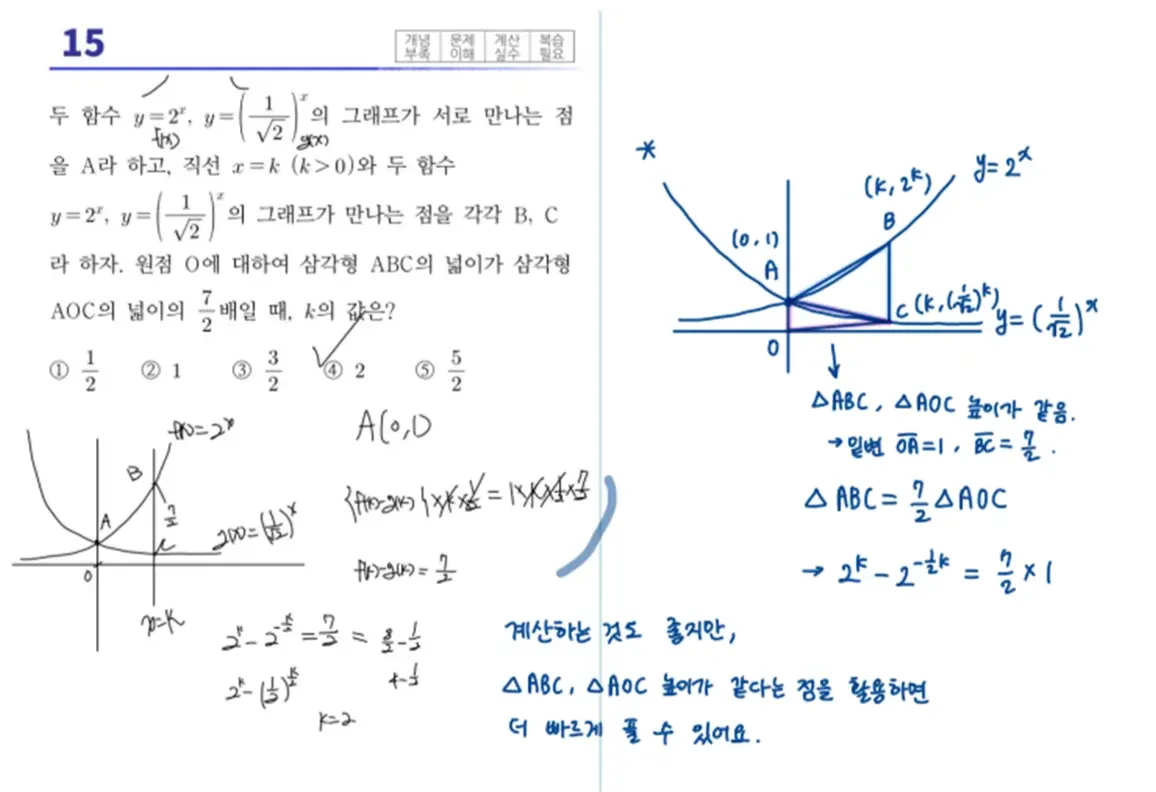 15
개념 부족 문제 이해 계산 실수 복습 필요
두 함수 y=2^x, y=(1/√2)^x의 그래프가 서로 만나는 점
f(x) g(x)
을 A라 하고, 직선 x=k (k>0)와 두 함수
y=2^x, y=(1/√2)^x의 그래프가 만나는 점을 각각 B, C
라 하자. 원점 O에 대하여 삼각형 ABC의 넓이가 삼각형
AOC의 넓이의 7/2배일 때, k의 값은?
① 1/2 ② 1 ③ 3/2 ④ 2 ⑤ 5/2
f(x)=2^x
B
A
7/2
C
g(x)=(1/√2)^x
O
x=k
A(0,1)
{f(k)-g(k)}×k×1/2=1×k×1/2×7/2
f(k)-g(k)=7/2
2^k-2^(-k/2)=7/2=8/2-1/2
2^k-(1/2)^(k/2)
4-1/2
k=2
*
y=2^x
(k, 2^k)
B
(0,1)
A
C (k, (1/√2)^k)
y=(1/√2)^x
O
△ABC, △AOC 높이가 같음.
→ 밑변 OA=1, BC=7/2.
△ABC=7/2△AOC
→ 2^k-2^(-1/2k)=7/2×1
계산하는 것도 좋지만,
△ABC, △AOC 높이가 같다는 점을 활용하면
더 빠르게 풀 수 있어요.